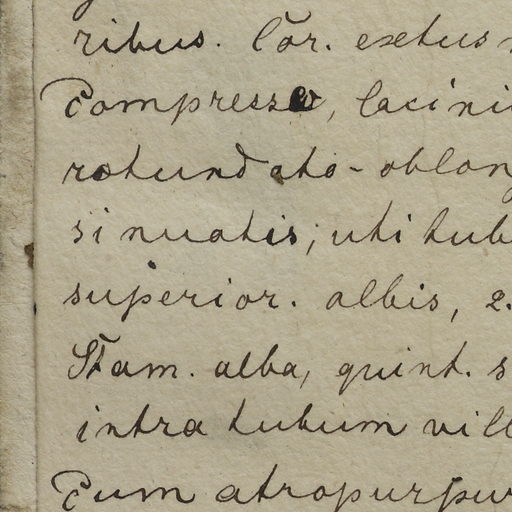 ribus. Cor. extus
Compresso, lacini
rotundato-oblong
sinuatis, uti tub
superior. albis, 2.
Stam. alba, quint. s
intra tubum vill
Cum atropurpur